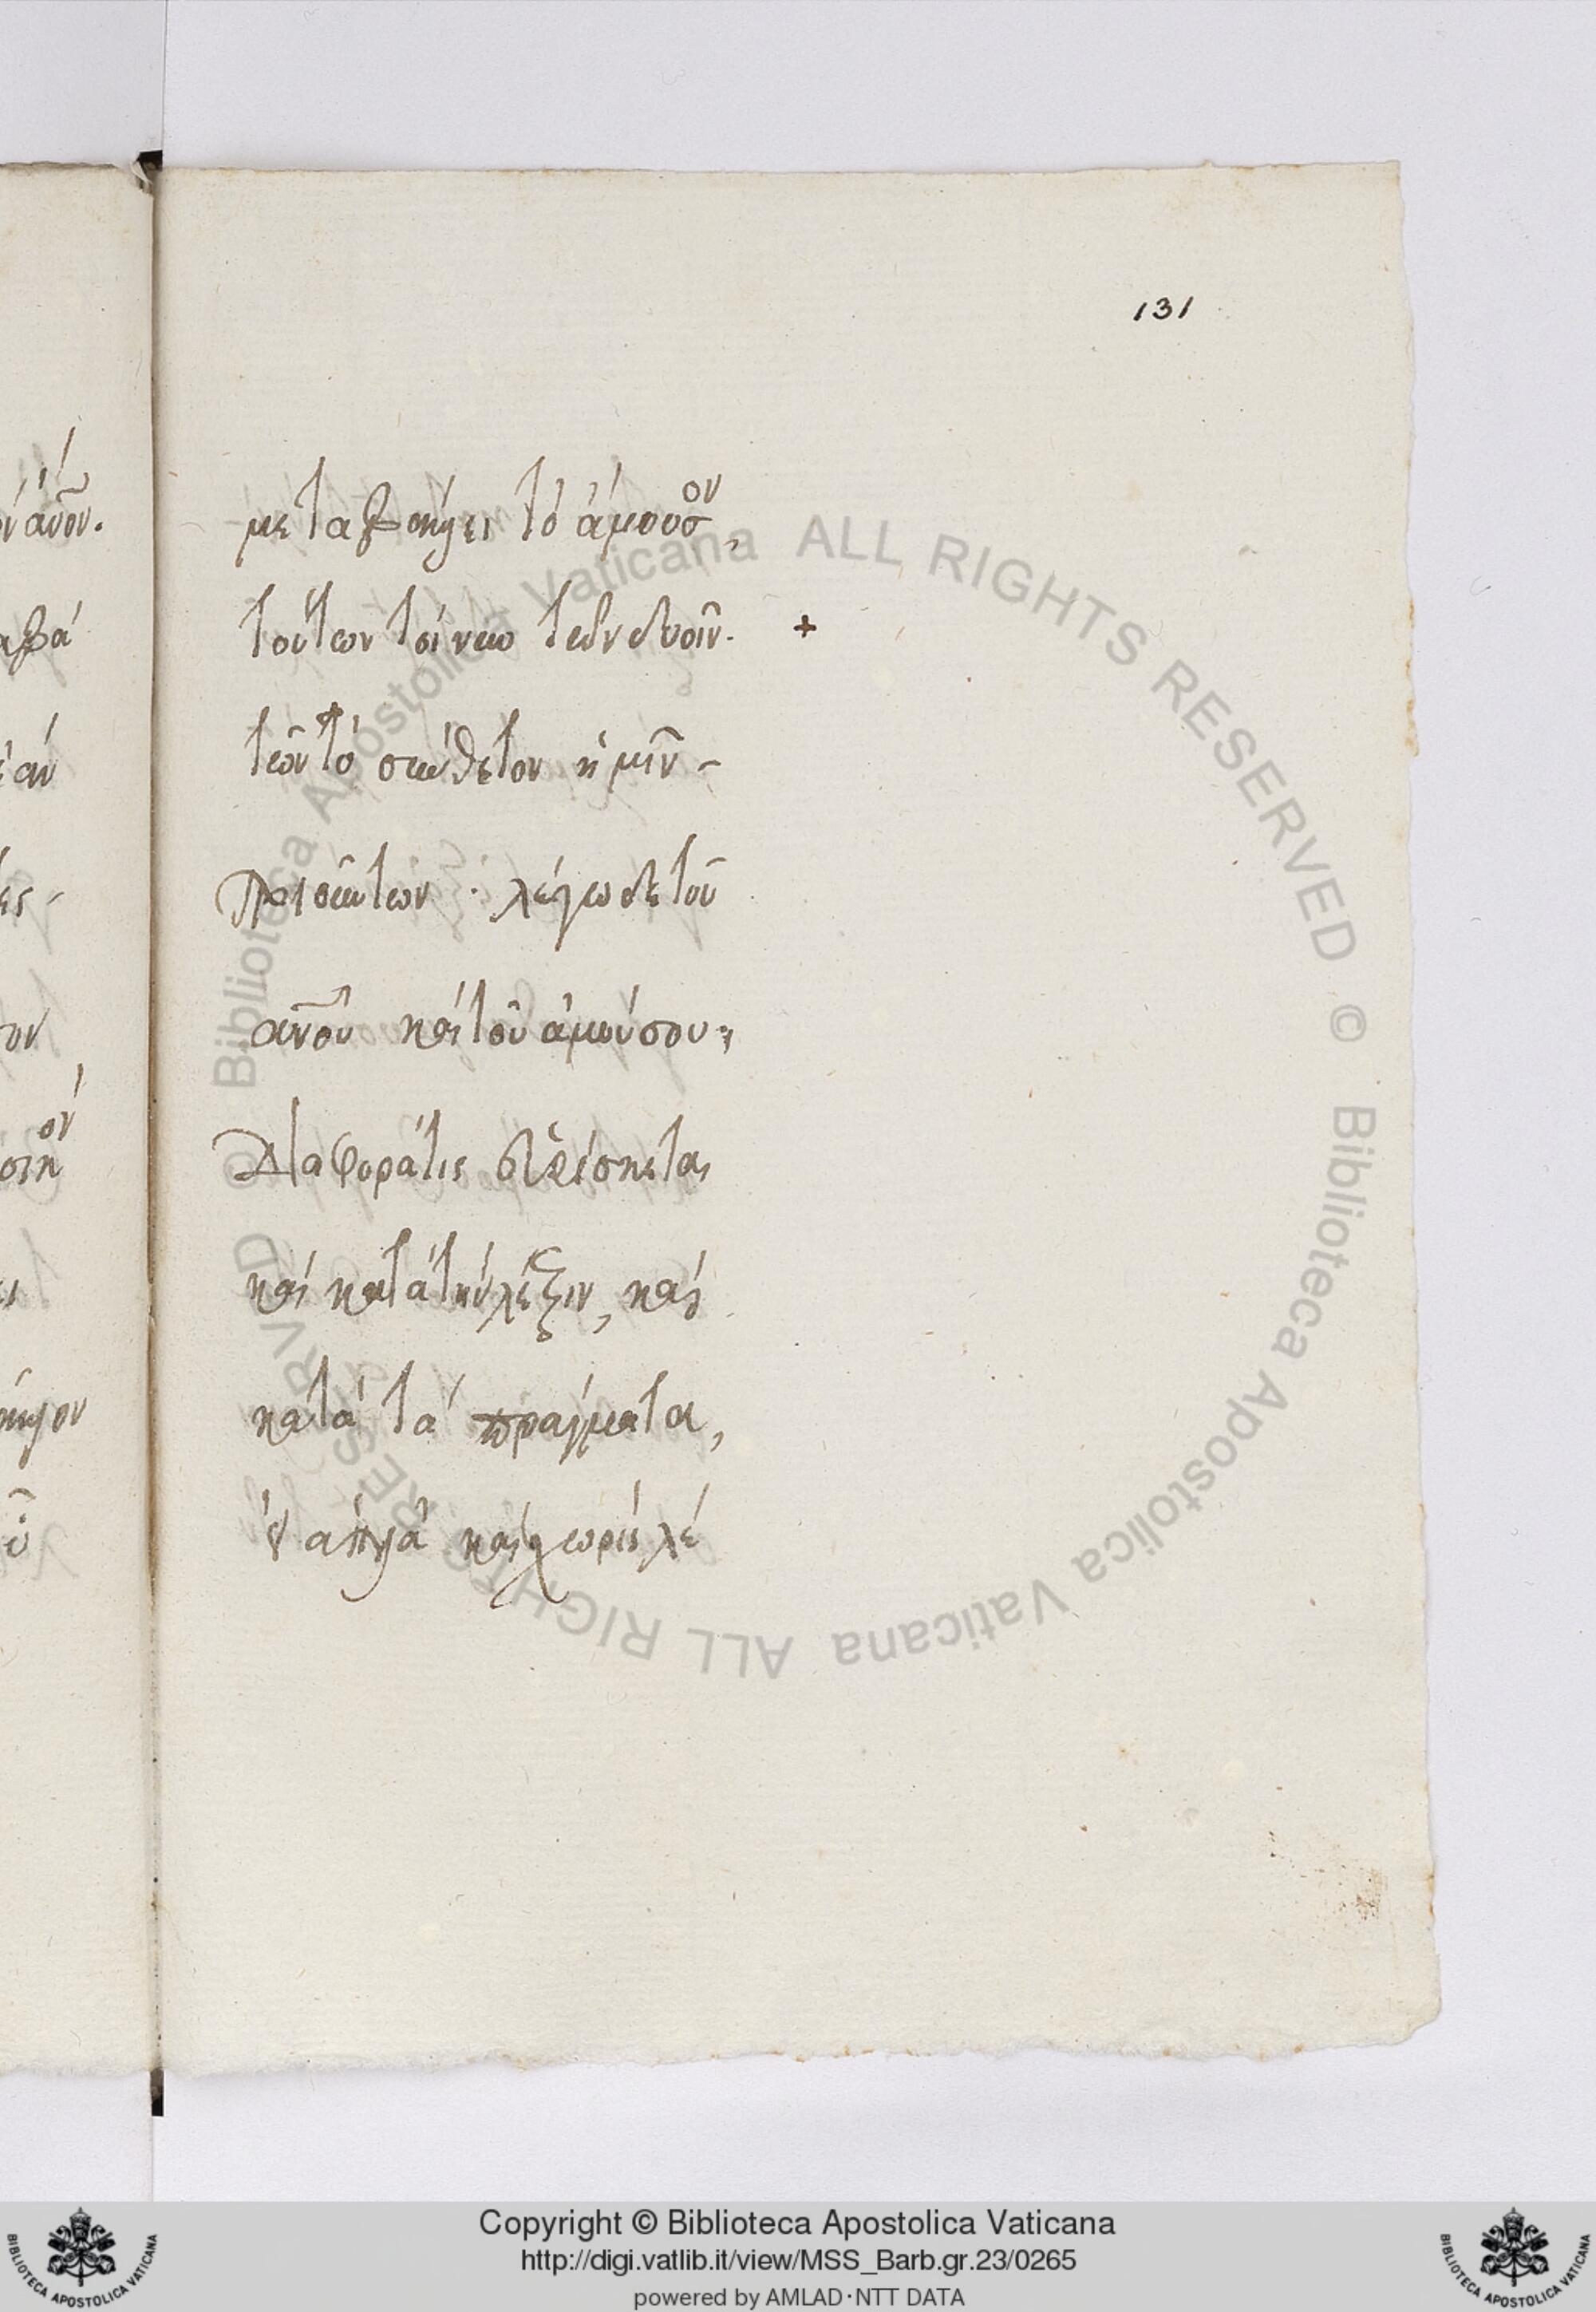 131
μεταβλήψει τὸ ἄμουσον,
τούτων τοίνυν τῶν δυοῖν.
τῶν τὸ σύνθετον ἡμῖν
ποιούντων . λέγω δὲ τοῦ
ανου καὶ τοῦ ἀμούσου
Διαφορά τις εὑρίσκεται
καὶ κατὰ τὴν λέξιν, καὶ
κατὰ τὰ πράγματα,
ἁπλᾶ καὶ χωρὶς λέ
Copyright © Biblioteca Apostolica Vaticana
http://digi.vatlib.it/view/MSS_Barb.gr.23/0265
powered by AMLAD·NTT DATA
BIBLIOTECA APOSTOLICA VATICANA
BIBLIOTECA APOSTOLICA VATICANA
© Biblioteca Apostolica Vaticana ALL RIGHTS RESERVED © Biblioteca Apostolica Vaticana ALL RIGHTS RESERVED